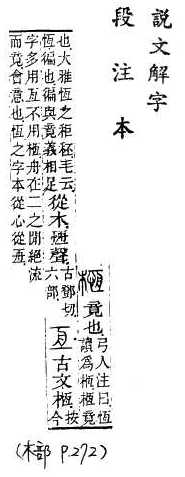 說文解字
段注本
㮓竟也
弓人注曰恆
讀爲㮓㮓竟
也大雅恆之秬秠毛云
恆徧也徧與竟義相足
從木恆聲
古鄧切
六部
亙古文㮓
按
今
字多用亙不用㮓舟在二之閒絕流
而竟會意也恆之字本從心從亙
(木部 P.272)